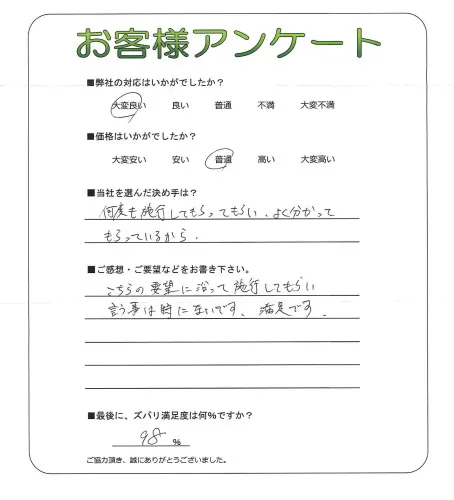 お客様アンケート
■弊社の対応はいかがでしたか？
大変良い 良い 普通 不満 大変不満
■価格はいかがでしたか？
大変安い 安い 普通 高い 大変高い
■当社を選んだ決め手は？
何度も施行してもらってもらい、よく分かって
もらっているから.
■ご感想・ご要望などをお書き下さい。
こちらの要望に沿って施行してもらい
言う事は特にないです、満足です.
■最後に、ズバリ満足度は何%ですか？
98 %
ご協力頂き、誠にありがとうございました。